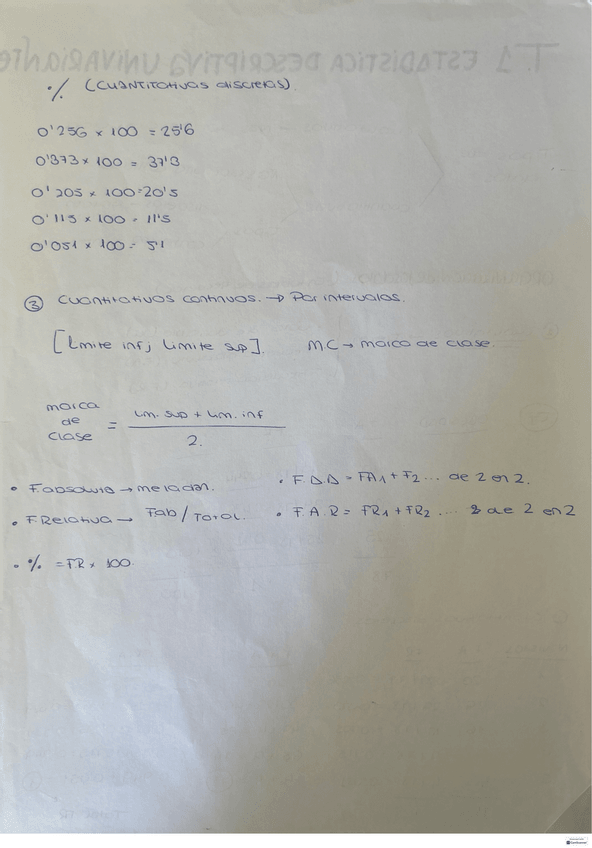 % (CUANTITATIVAS DISCRETAS).
0'256 x 100 = 25'6
0'373 x 100 = 37'3
0'205 x 100 = 20'5
0'115 x 100 = 11'5
0'051 x 100 = 5'1
③ CUANTITATIVAS CONTINUAS. → Por intervalos.
[Limite inf; Limite sup]. MC → marca de clase.
marca de clase = Lim. sup + Lim. inf / 2.
• F. absoluta → me la dan. • F.A.A = FA1 + F2 ... de 2 en 2.
• F. Relativa → Fab / Total. • F.A.R = FR1 + FR2 .... de 2 en 2
• % = F.R x 100.
T.1 ESTADÍSTICA DESCRIPTIVA UNIVARIANTE